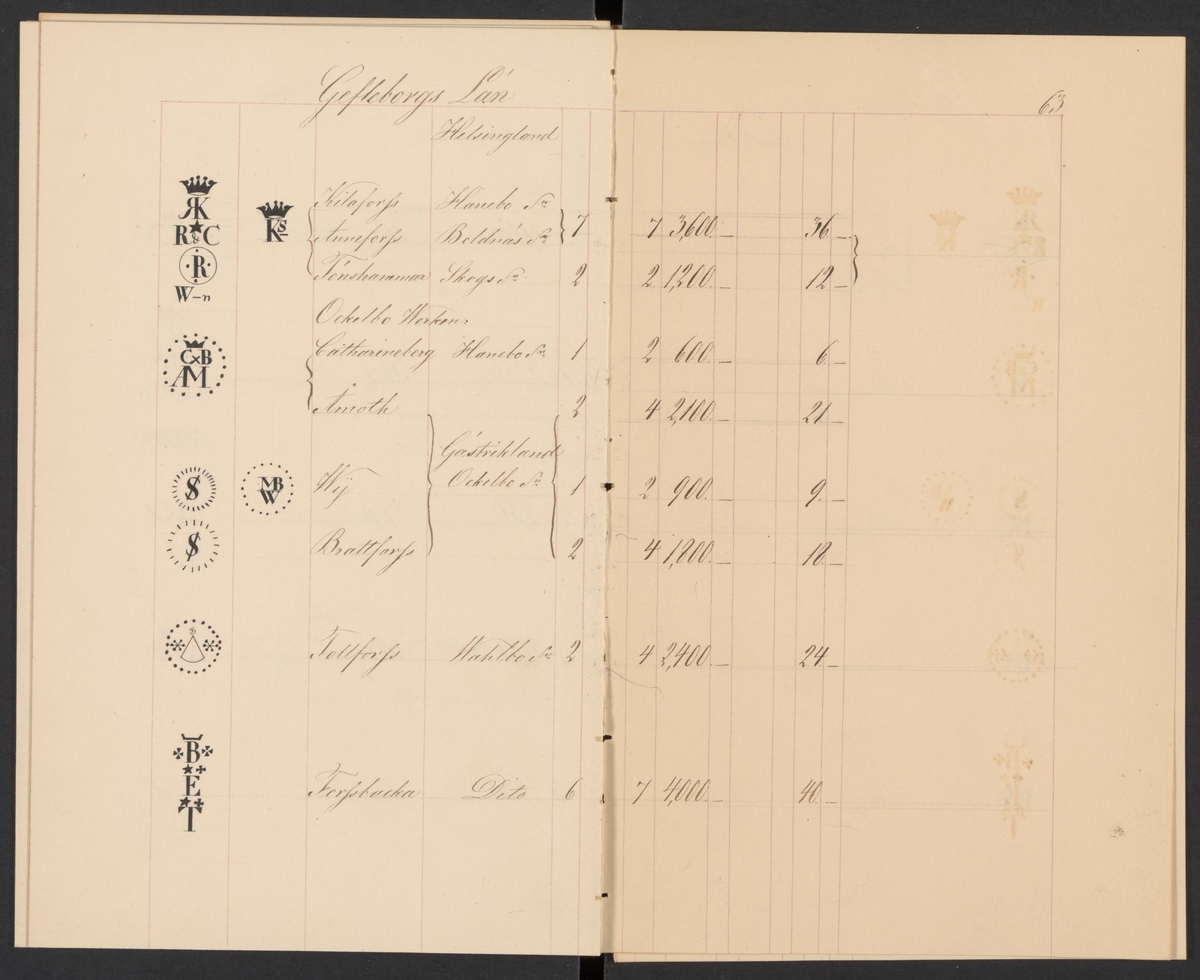 Gefleborgs Län
63
Helsingland
Kilaforss Hanebo Sn 7 7 3,600.— 36.—
Anneforss Bollnäs Sn
Tönshammar Skogs Sn 2 2 1,200.— 12.—
Ockelbo Werken:
Catharineberg Hanebo Sn 1 2 600.— 6.—
Åmoth 2 4 2,100.— 21.—
Gästrikland
Wij Ockelbo Sn 1 2 900.— 9.—
Brattforss 2 4 1,800.— 18.—
Tollforss Wahlbo Sn 2 4 2,400.— 24.—
Forssbacka Dito 6 7 4,000.— 40.—
K
R C
R
W–n
Ks
C×B
AM
S
MB
W
S
B
E
T